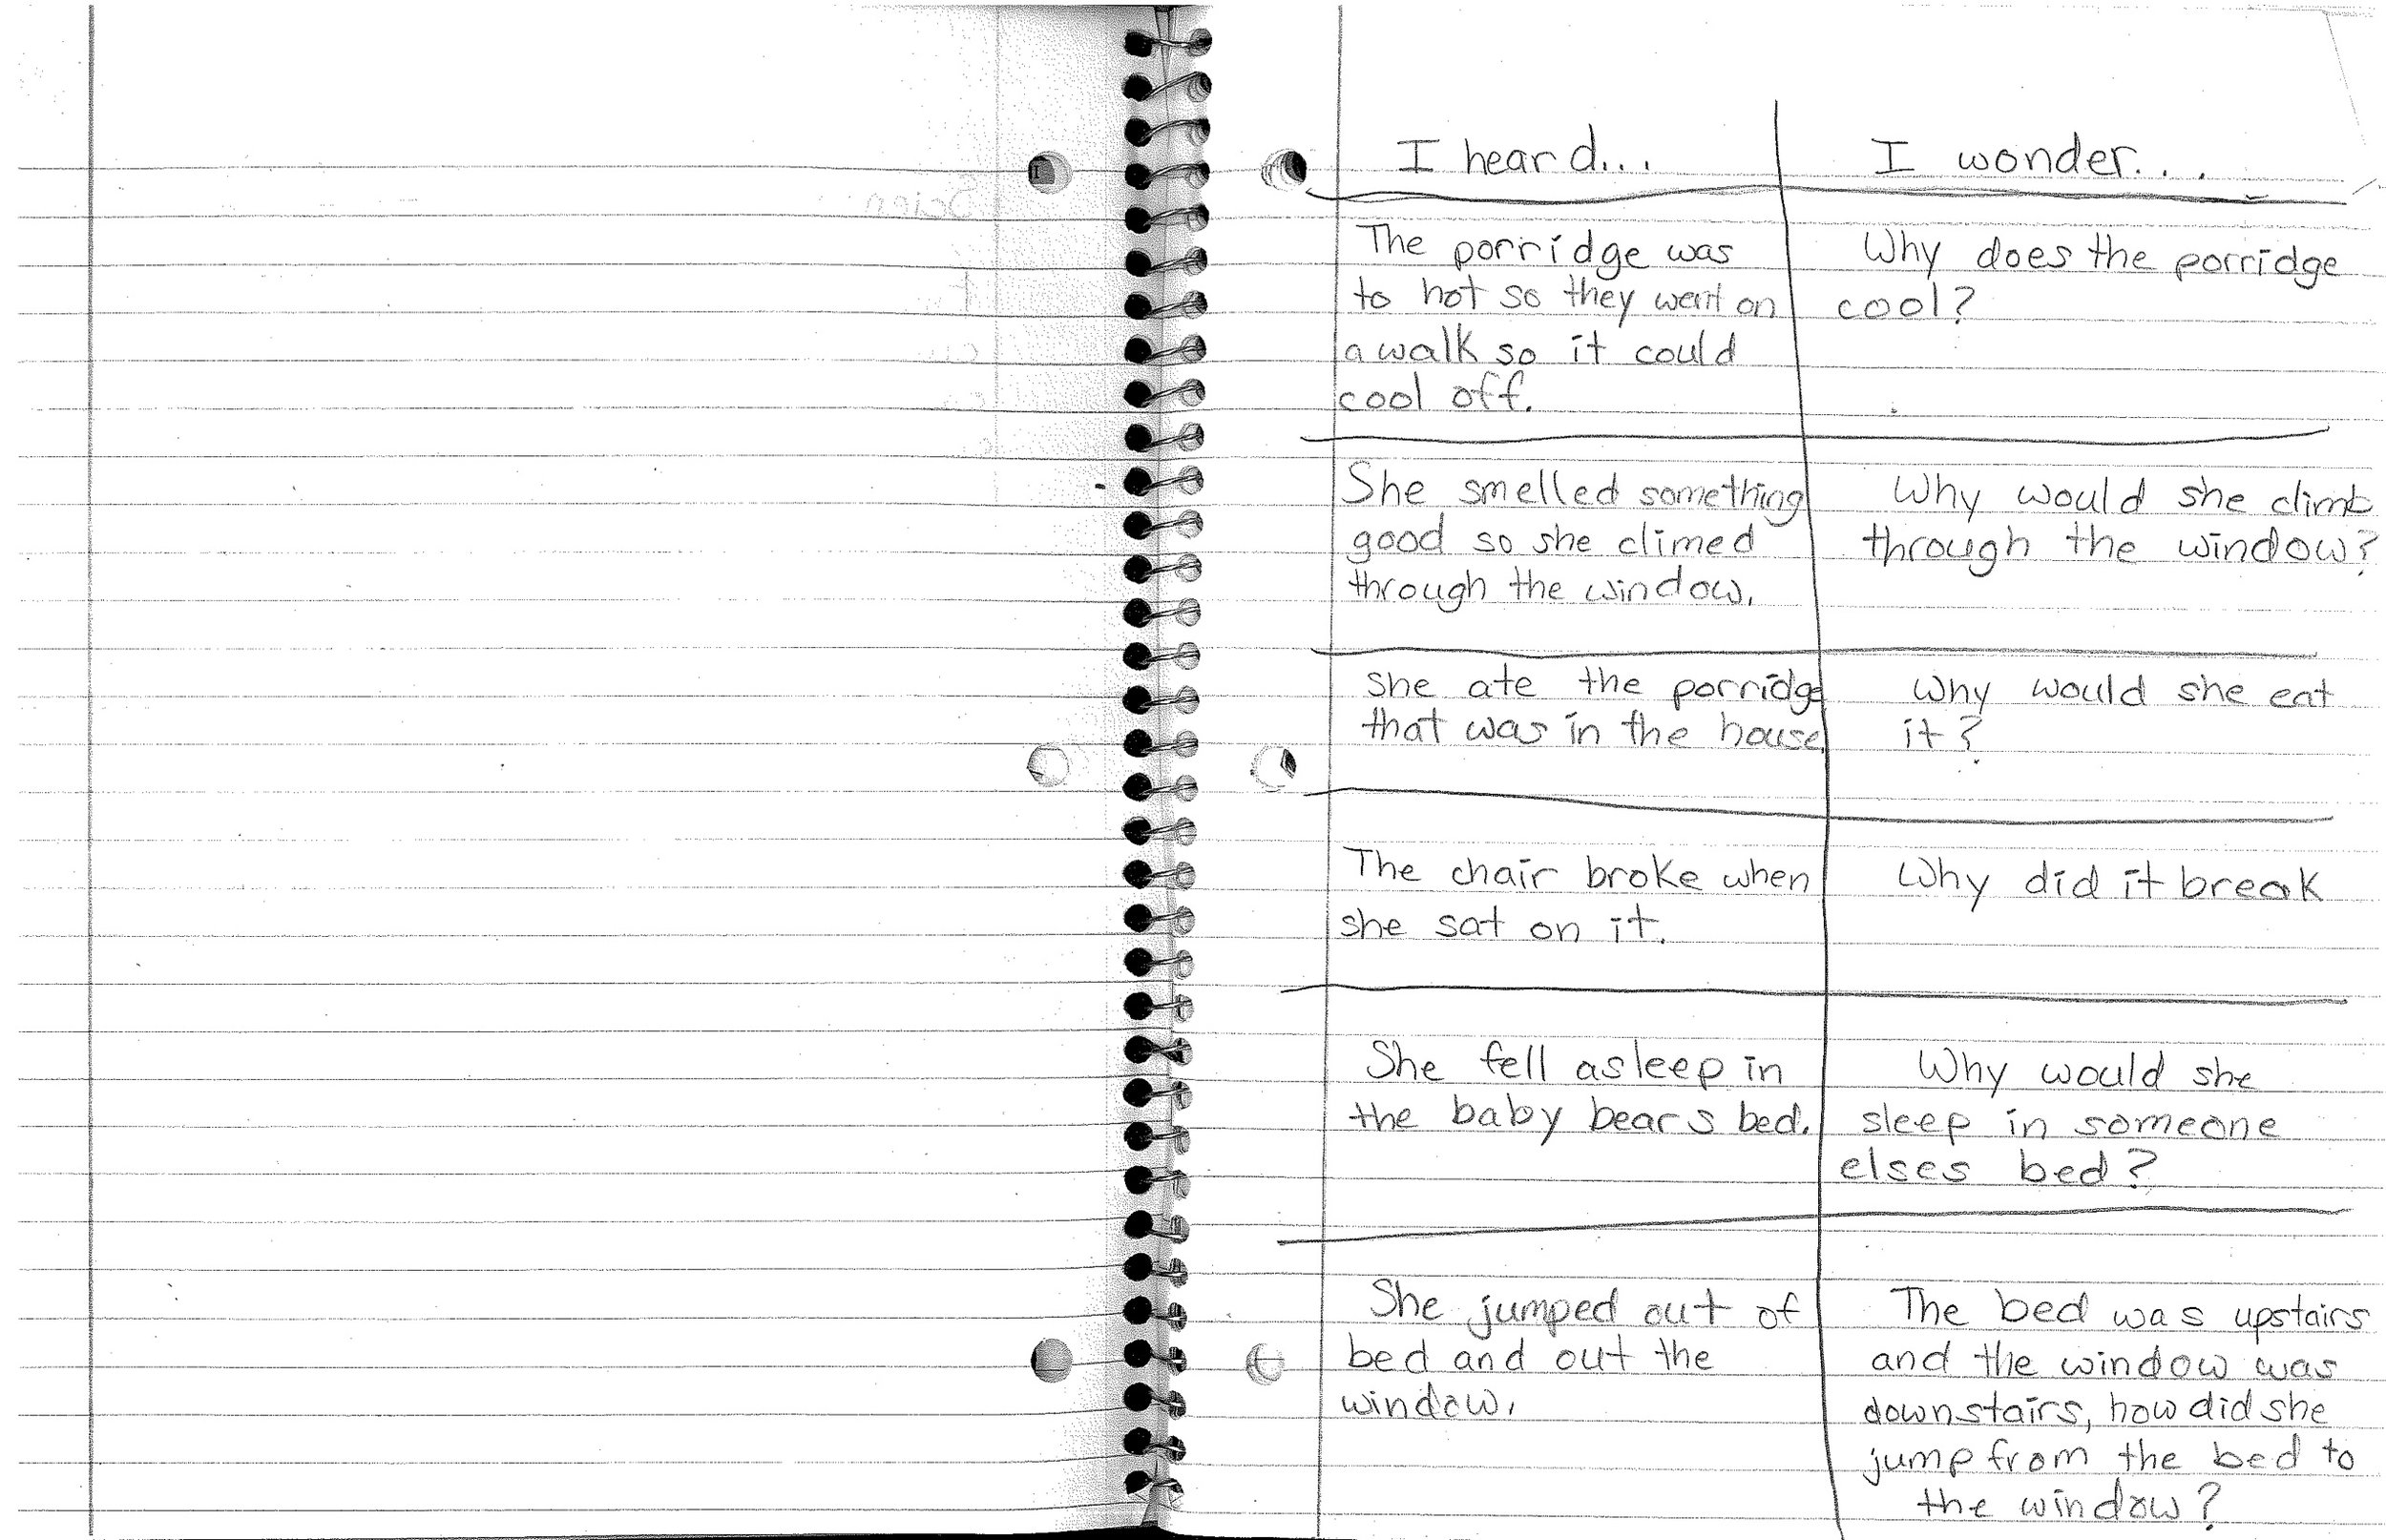 I heard... I wonder...
The porridge was
to hot so they went on
a walk so it could
cool off.
Why does the porridge
cool?
She smelled something
good so she climed
through the window.
Why would she climb
through the window?
she ate the porridge
that was in the house.
Why would she eat
it?
The chair broke when
she sat on it.
Why did it break
She fell asleep in
the baby bears bed.
Why would she
sleep in someone
elses bed?
She jumped out of
bed and out the
window.
The bed was upstairs
and the window was
downstairs, how did she
jump from the bed to
the window?